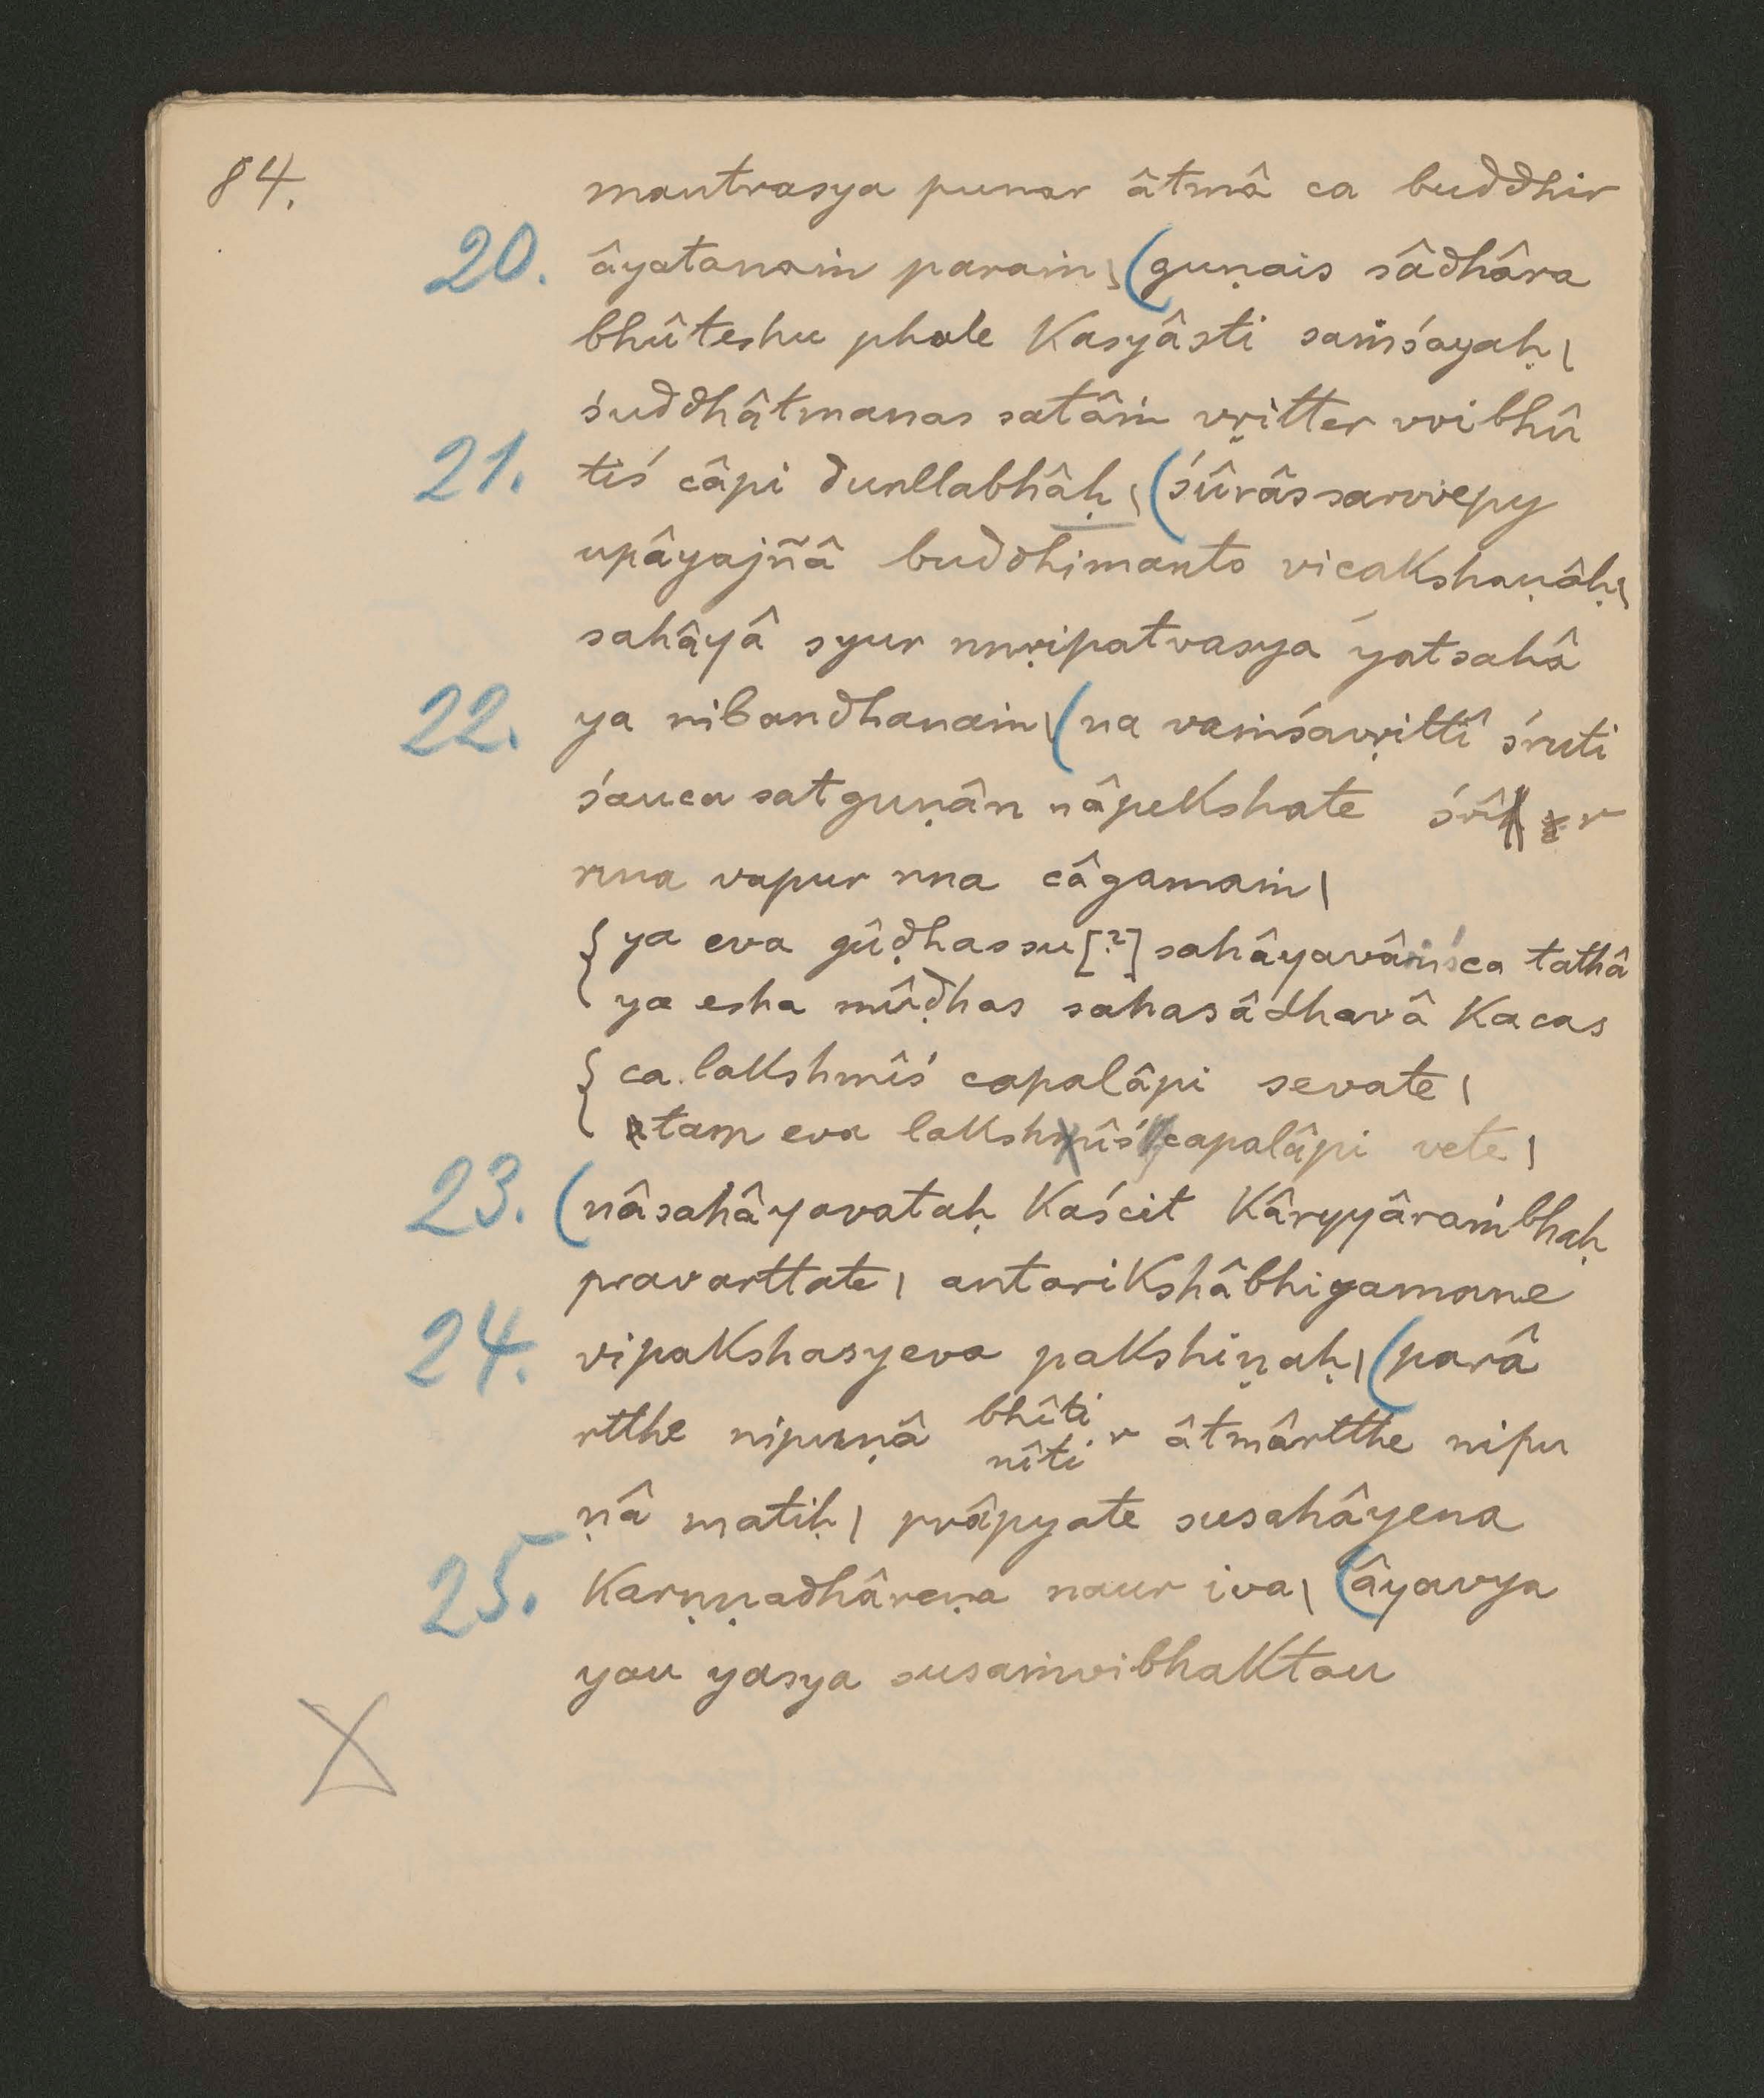 84.
mantrasya punar âtmâ ca buddhir
20. âyatanaṁ paraṁ\ (guṇais sâdhâra
bhûteshu phale Kasyâsti saṁśayaḥ\
śuddhâtmanas satâṁ vṛitter vvibhû
21. tiś câpi durllabhâḥ\ (śûrâs sarvvepy
upâyajñâ buddhimanto vicakshaṇâḥ\
sahâyâ syur nnṛipatvasya yatsahâ
22. ya nibandhanaṁ\ (na vaṁśavṛittî śruti
śauca satguṇân nâpekshate śrî r
nna vapur nna câgamaṁ\
{ ya eva gûḍhas su [?] sahâyavâṁśca tathâ
ya esha mûḍhas sahasâdhavâ Kacas
{ ca lakshmîś capalâpi sevate\
tam eva lakshmîś capalâpi vete\
23. (nâsahâyavataḥ Kaścit Kâryyâraṁbhaḥ
pravarttate\ antarikshâbhigamane
24. vipakshasyeva pakshiṇaḥ\ (parâ
rtthe nipuṇâ bhîti r âtmârtthe nipu
nîti
ṇâ matiḥ\ prâpyate susahâyena
25. Karṇṇadhâreṇa naur iva\ (âyavya
yau yasya susaṁvibhaktau